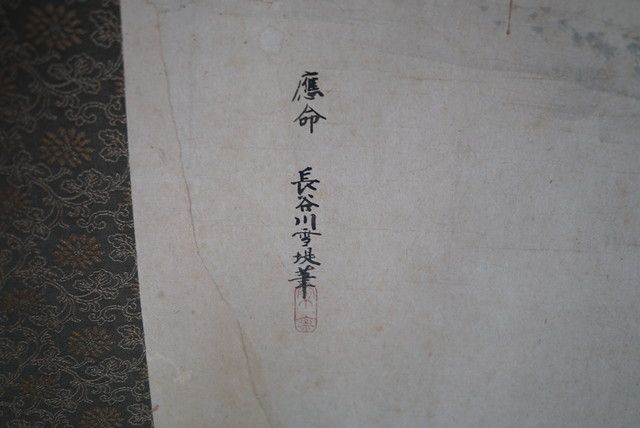 應命 長谷川雪堤筆